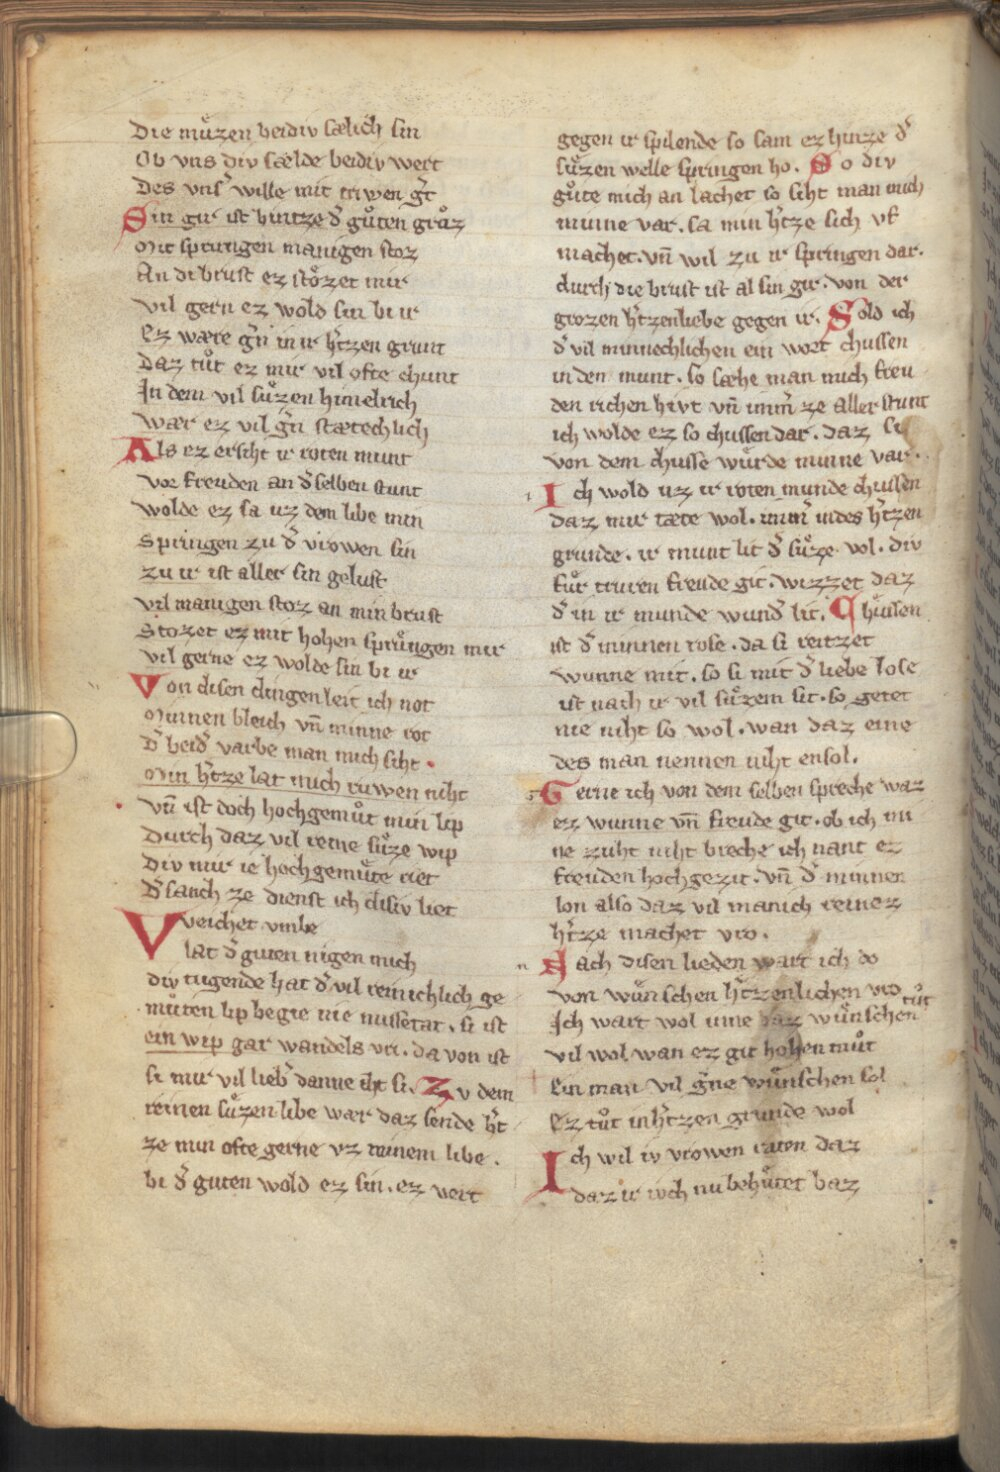 Die muͦzen beidiv sælich sin
Ob vns div sælde beidiv wert
Des vnſ̓ wille mit triwen g̓t
Sin gir ist hintze d̓ guͦten gruͦz
Mit sprungen manigen stoz
An di brust ez stoͤzet mir
vil gern ez wold sin bi ir
Ez wære g̓n in ir h̓tzen grunt
Daz tuͦt ez mir vil ofte chunt
In dem vil suͤzen himelrich
wær ez vil g̓n stætechlich
Als ez ersiht ir roten munt
vor freuden an d̓ selben stunt
wolde ez sa uz dem libe min
springen zu d̓ vrowen sin
zu ir ist aller sin gelust
vil manigen stoz an min brust
Stozet ez mit hohen sprungen mir
vil gerne ez wolde sin bi ir
Von disen dingen leit ich not
Minen bleich vn̄ minne rot
D̓ beid̓ varbe man mich siht
Min h̓tze lat mich ruwen niht
vn̄ ist doch hochgemuͦt min lip
Durch daz vil reine suͤze wip
Div mir ie hochgemuͤte riet
D̓ sanch ze dienst ich disiv liet
Vveichet vmbe
lat d̓ guten nigen mich
div tugende hat d̓ vil reinichlich ge
muͦten lip begie nie missetat . si ist
ein wip gar wandels vri . da von ist
si mir vil lieb̓ danne iht si . Zv dem
reinen suͤzen libe wær daz sende h̓t
ze min ofte gerne vz minem libe .
bi d̓ guten wold ez sin . ez vert
gegen ir spilende so sam ez hinze d̓
suͤzen welle springen ho . So div
guͦte mich an lachet so siht man mich
minne var . sa min h̓tze sich vf
machet . vn̄ wil zu ir springen dar .
durch die brust ist al sin gir . von der
grozen h̓tzenliebe gegen ir . Sold ich
d̓ vil minnechlichen ein wort chussen
in den munt . so sæhe man mich freu
den richen hivt vn̄ im̄ ze aller stunt
ich wolde ez so chussen dar . daz si
von dem chusse wuͤrde minne var .
Ich wold uz ir roten munde chussen
daz mir tæte wol . im̄ in des h̓tzen
grunde . ir munt lit d̓ suͤze vol . div
fuͤr truren freude git . wizzet daz
d̓ in ir munde wund̓ lit . Chüssen
ist d̓ minnen rose . da si reitzet
wunne mit . so si mit d̓ liebe lose
ist nach ir vil suͤzem sit . so getet
nie niht so wol . wan daz eine
des man nennen niht ensol .
Gerne ich von dem selben spreche waz
ez wunne vn̄ freude git . ob ich mi
ne zuht niht breche ich nant ez
freuden hochgezit . vn̄ d̓ minnen
lon also daz vil manich reinez
h̓tze machet vro .
Nach disen lieden wart ich do
von wuͤnschen h̓tzenlichen vro
Ich wart wol inne daz wuͤnschen tuͦt
vil wol wan ez git hohen muͦt
Ein man vil g̓ne wuͤnschen sol
Ez tuͦt in h̓tzen grunde wol
Ich wil iv vrowen raten daz
daz ir ivch nu behuͤtet baz